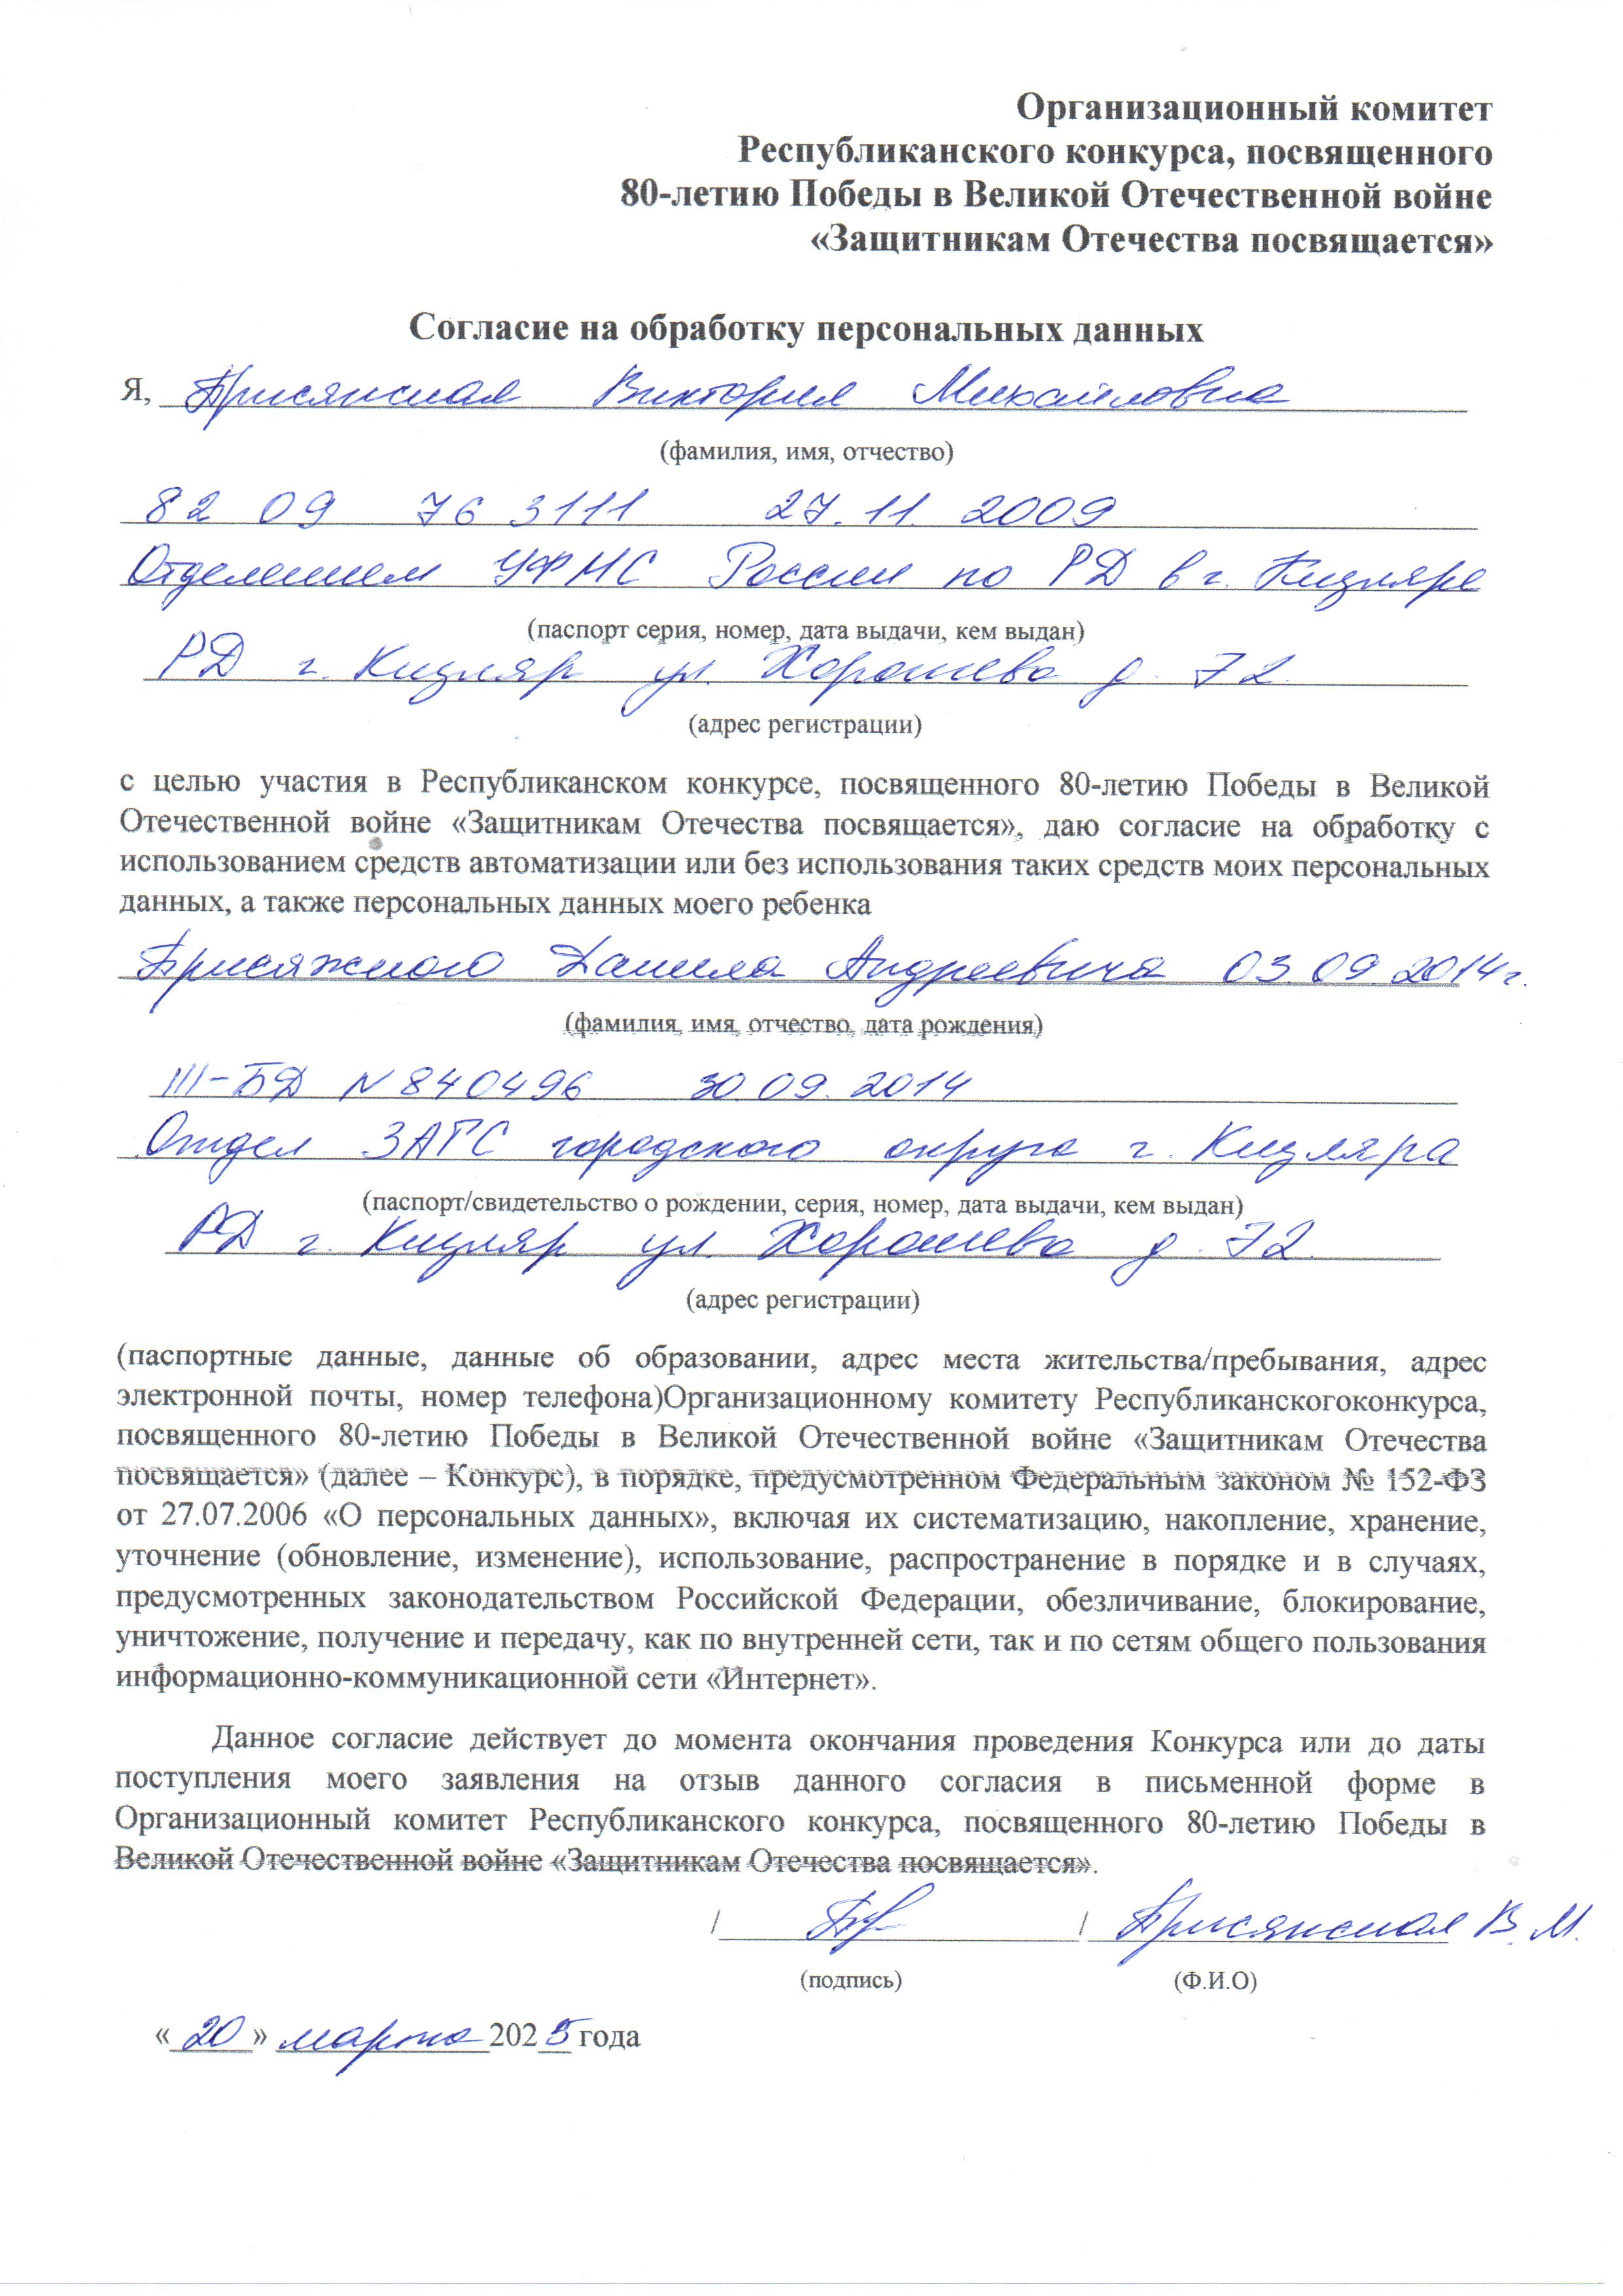 Организационный комитет
Республиканского конкурса, посвященного
80-летию Победы в Великой Отечественной войне
«Защитникам Отечества посвящается»
Согласие на обработку персональных данных
Я, Присяжная Виктория Михайловна
(фамилия, имя, отчество)
82 09 76 3111 27.11. 2009
Отделением УФМС России по РД в г. Кизляре
(паспорт серия, номер, дата выдачи, кем выдан)
РД г. Кизляр ул. Хорошева д. 72.
(адрес регистрации)
с целью участия в Республиканском конкурсе, посвященного 80-летию Победы в Великой
Отечественной войне «Защитникам Отечества посвящается», даю согласие на обработку с
использованием средств автоматизации или без использования таких средств моих персональных
данных, а также персональных данных моего ребенка
Присяжного Данила Андреевича 03.09.2014г.
(фамилия, имя, отчество, дата рождения)
III-БД N 840496 30.09.2014
Отдел ЗАГС городского округа г. Кизляра
(паспорт/свидетельство о рождении, серия, номер, дата выдачи, кем выдан)
РД г. Кизляр ул. Хорошева д. 72.
(адрес регистрации)
(паспортные данные, данные об образовании, адрес места жительства/пребывания, адрес
электронной почты, номер телефона)Организационному комитету Республиканскогоконкурса,
посвященного 80-летию Победы в Великой Отечественной войне «Защитникам Отечества
посвящается» (далее – Конкурс), в порядке, предусмотренном Федеральным законом № 152-ФЗ
от 27.07.2006 «О персональных данных», включая их систематизацию, накопление, хранение,
уточнение (обновление, изменение), использование, распространение в порядке и в случаях,
предусмотренных законодательством Российской Федерации, обезличивание, блокирование,
уничтожение, получение и передачу, как по внутренней сети, так и по сетям общего пользования
информационно-коммуникационной сети «Интернет».
Данное согласие действует до момента окончания проведения Конкурса или до даты
поступления моего заявления на отзыв данного согласия в письменной форме в
Организационный комитет Республиканского конкурса, посвященного 80-летию Победы в
Великой Отечественной войне «Защитникам Отечества посвящается».
/ / Присяжная В.М.
(подпись) (Ф.И.О)
«20» марта 2025 года